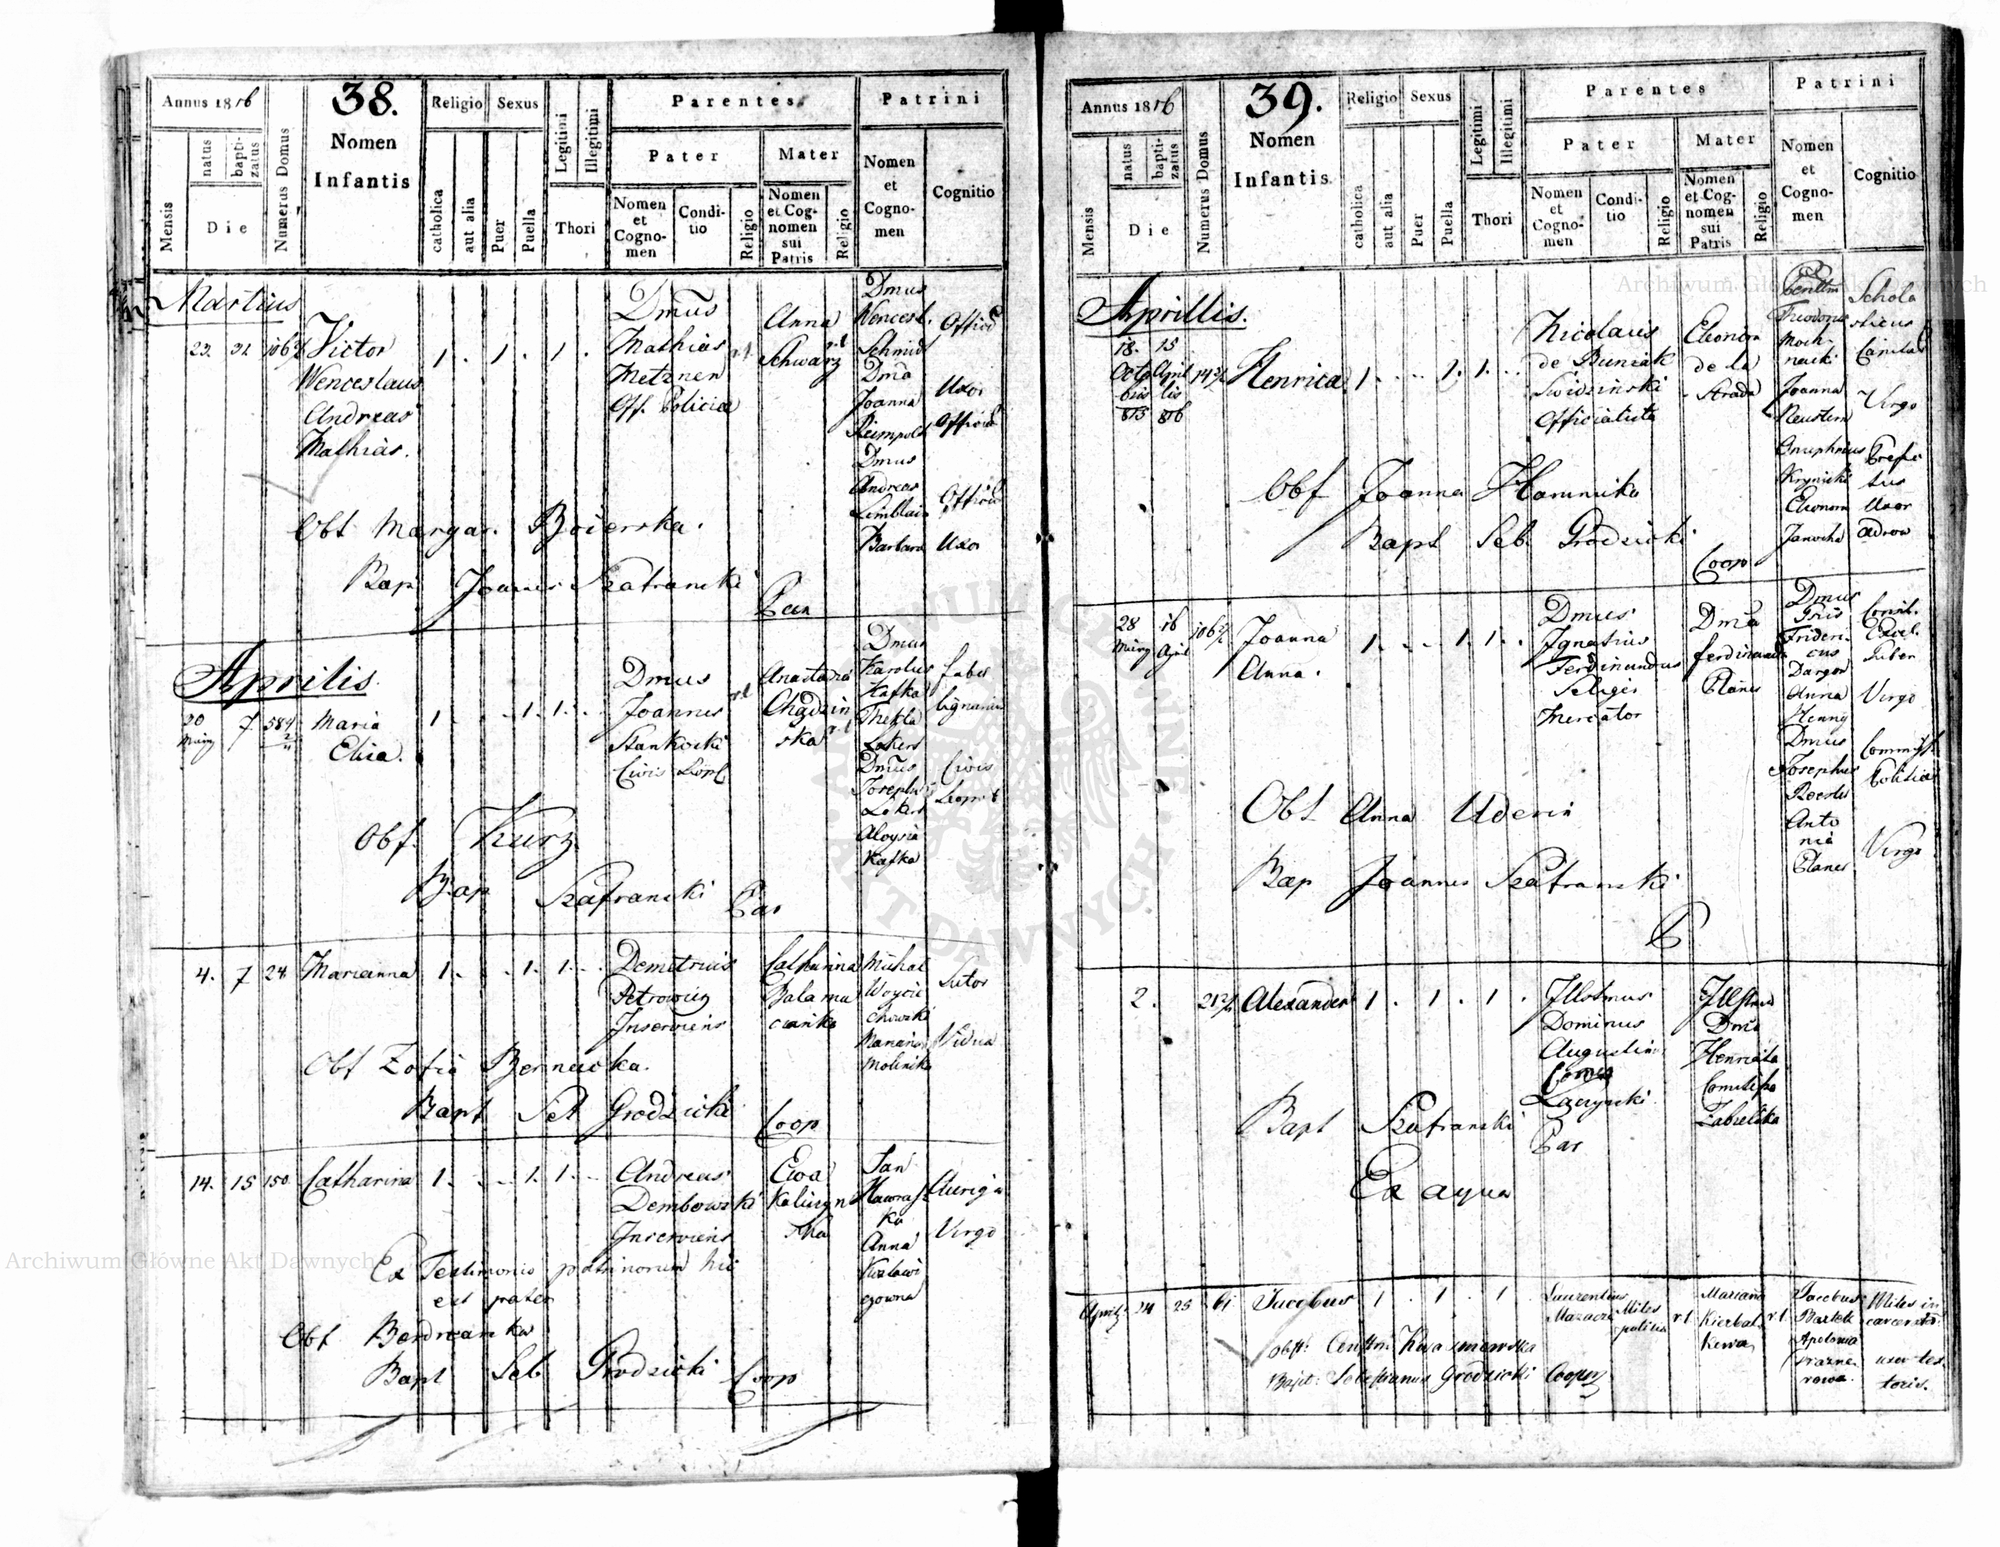 Annus 1816
38.
Religio
Sexus
Legitimi
Illegitimi
Parentes
Patrini
Mensis
natus
bapti-
zatus
Die
Numerus Domus
Nomen
Infantis
catholica
aut alia
Puer
Puella
Thori
Pater
Mater
Nomen
et
Cogno-
men
Condi-
tio
Religio
Nomen
et Cog-
nomen
sui
Patris
Religio
Nomen
et
Cogno-
men
Cognitio
Martius
23. 31. 106 2/4 Victor
Wenceslaus
Andreas
Mathias.
1 . . 1 . 1 .
Dmus
Mathias
Metzner
Off. Policiae
r.l.
Anna
Schwarz
r.l.
Dmus
Wencesl.
Schmidt
Dma
Joanna
Reimpold
Dmus
Andreas
Limblais
Barbara
Uxor
Uxor
Obt Margar. Boierska.
Bap Joanes Szafranski
Aprilis.
20 7 584
Martz
Maria
Elisa.
1 . . . 1. 1. . .
Dmus
Joannes
Stankoski
Civis Leopl
r.l.
Anastasia
Chądzin
ska r.l
Dmus
Karolus
Kafka
Thekla
Lokert
Dmus
Josephus
Lokert
Aloysia
Kafka
Faber
lignarius
Civis
Leopol
Obf. Kurz
Bap Szafranski Par
4. 7 24 Marianna 1 . . . 1. 1. . .
Demetrius
Petrowicz
Inserviens
Catharina
Balamu
czanka
Michal
Woycie
chowski
Mariana
Molinska
Sutor
Vidua
Obf Zofia Bernawska.
Bapt Seb Grodzicki Coop
14. 15 150. Catharina 1 . . . 1. 1. . .
Andreas
Dembowski
Inserviens
Ewa
Kaliszyn
ska
Jan
Hawrasz
ko
Anna
Kozlowi
czowna
Auriga
Virgo
Ex Testimonio patrinorum hic
est pater
Obf Bendrzanka
Bapt Seb Grodzicki Coop
Annus 1816
39.
Religio
Sexus
Legitimi
Illegitimi
Parentes
Patrini
Mensis
natus
bapti-
zatus
Die
Numerus Domus
Nomen
Infantis.
catholica
aut alia
Puer
Puella
Thori
Pater
Mater
Nomen
et
Cogno-
men
Condi-
tio
Religio
Nomen
et Cog-
nomen
sui
Patris
Religio
Nomen
et
Cogno-
men
Cognitio
Aprillis.
18. 15
Octo Apri
bris lis
815 816
Henrica 1 . . . 1. 1. . .
Nicolaus
de Buniak
Swidzinski
Officialista
Eleonora
de la
Strada
Theodorus
Moch-
nacki
Joanna
Neustern
Onuphrius
Krynicki
Eleonora
Janocha
Schola
sticus
Virgo
Prefe
ctus
Uxor
Obf Joanna Hamnika
Bapt Seb. Grodzicki
Coop
28 16
Martz April
106 2/4
Joanna
Anna.
1. . . . 1. 1. . .
Dmus
Ignatius
Ferdinandus
Seliger
Mercator
Dma
Ferdinanda
Planes
Dmus
Frideri-
cus
Dargon
Anna
Henny
Dmus
Josephus
Roesler
Anto
nia
Planes
Virgo
Virgo
Obt Anna Uderin
Bap Joannes Szafranski
P
2. 21 2/4 Alexander 1 . 1 . 1 .
Illstmus
Dominus
Augustin
Comes
Laczynski
Dma
Henrieta
Comitissa
Zabielska
Bapt Szafranski
Par
Ex aqua
Aprilis 24 25 61 Jacobus 1 . 1 . 1 .
Laurentius
Mazacz
Miles
r.l.
Mariana
Kierbal
kewa
r.l.
Jacobus
Bartek
Apolonia
Wazne
rowa.
Miles in
carcerato
uxor tes
toris.
Obst: Centhn: Kwasniewska
Bapt: Sebestianus Grodzicki Cooptr
Archiwum Główne Akt Dawnych
Archiwum Główne Akt Dawnych